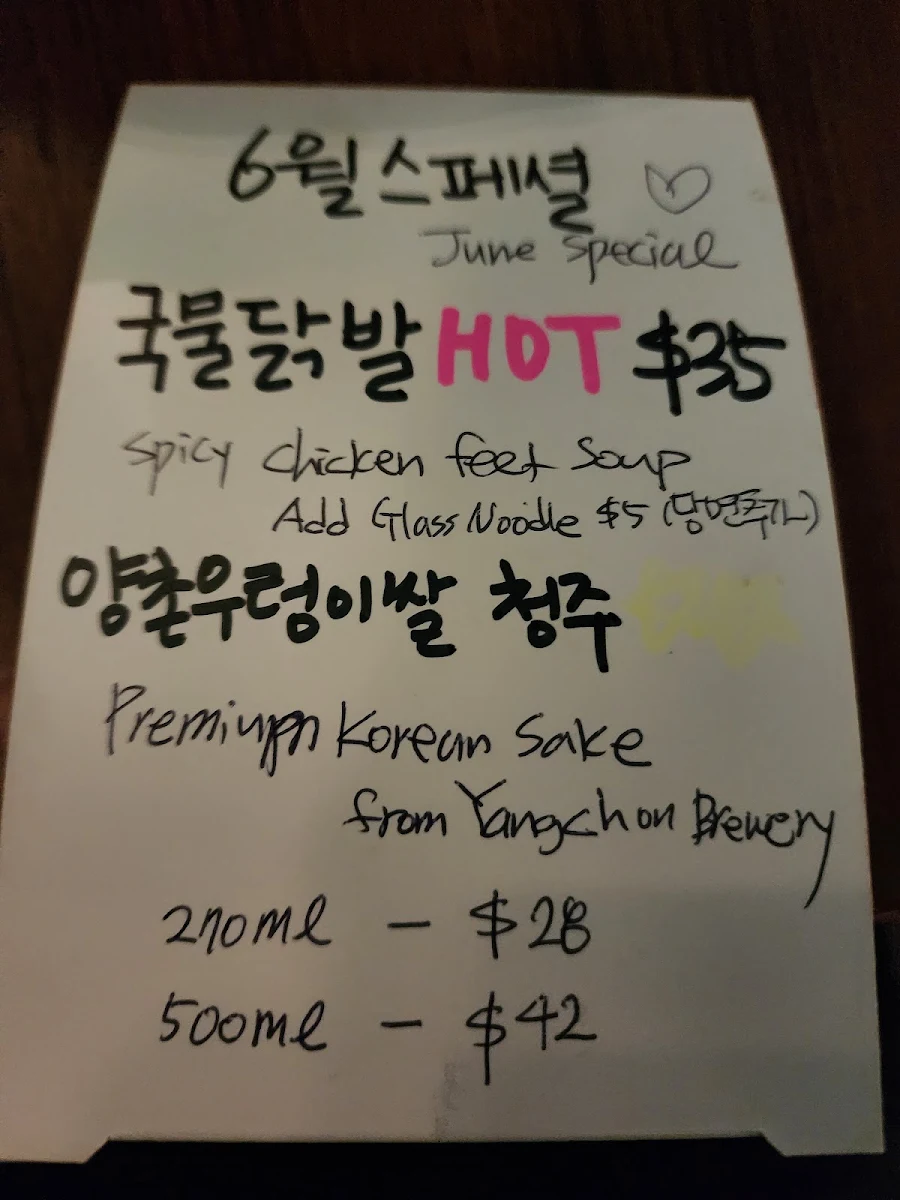 6월 스페셜
June special
국물닭발 HOT $35
Spicy chicken feet Soup
Add Glass Noodle $5 (당면추가)
양촌우렁이쌀 청주
Premium Korean Sake
from Yangchon Brewery
270ml - $28
500ml - $42